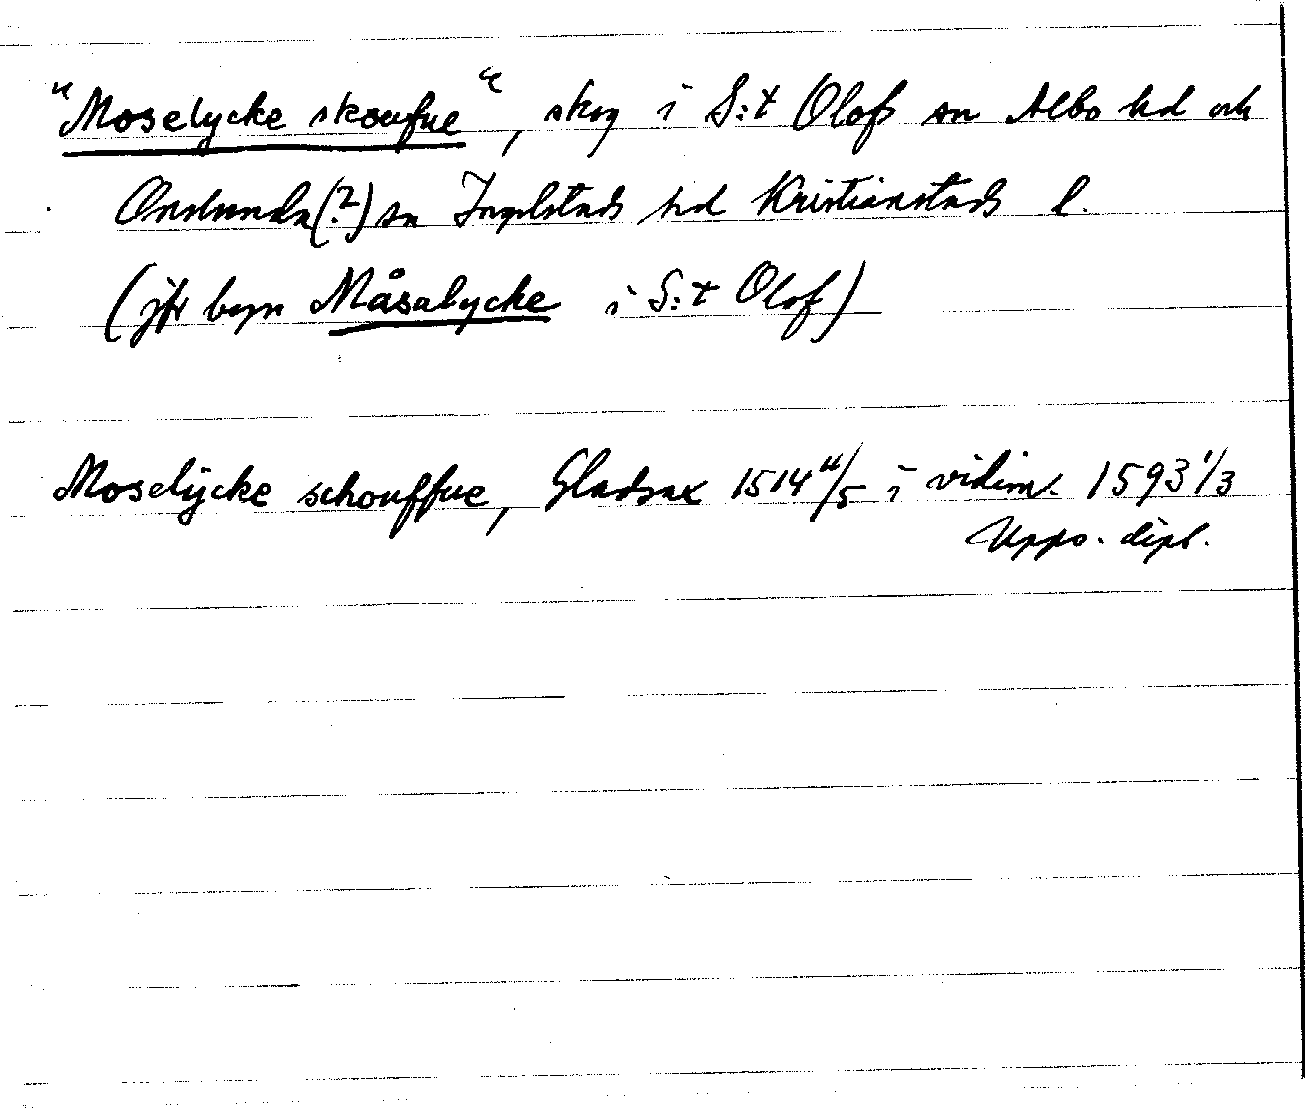 "Moselycke skoufue", skog i S:t Olofs sn Albo hd och
Onslunda(?) sn Ingelstads hd Kristianstads l.
(jfr byn Måsalycke i S:t Olof)
Moselÿcke schouffue, Gladsax 1514 11/5 i vidim. 1593 1/3
Upps. dipl.